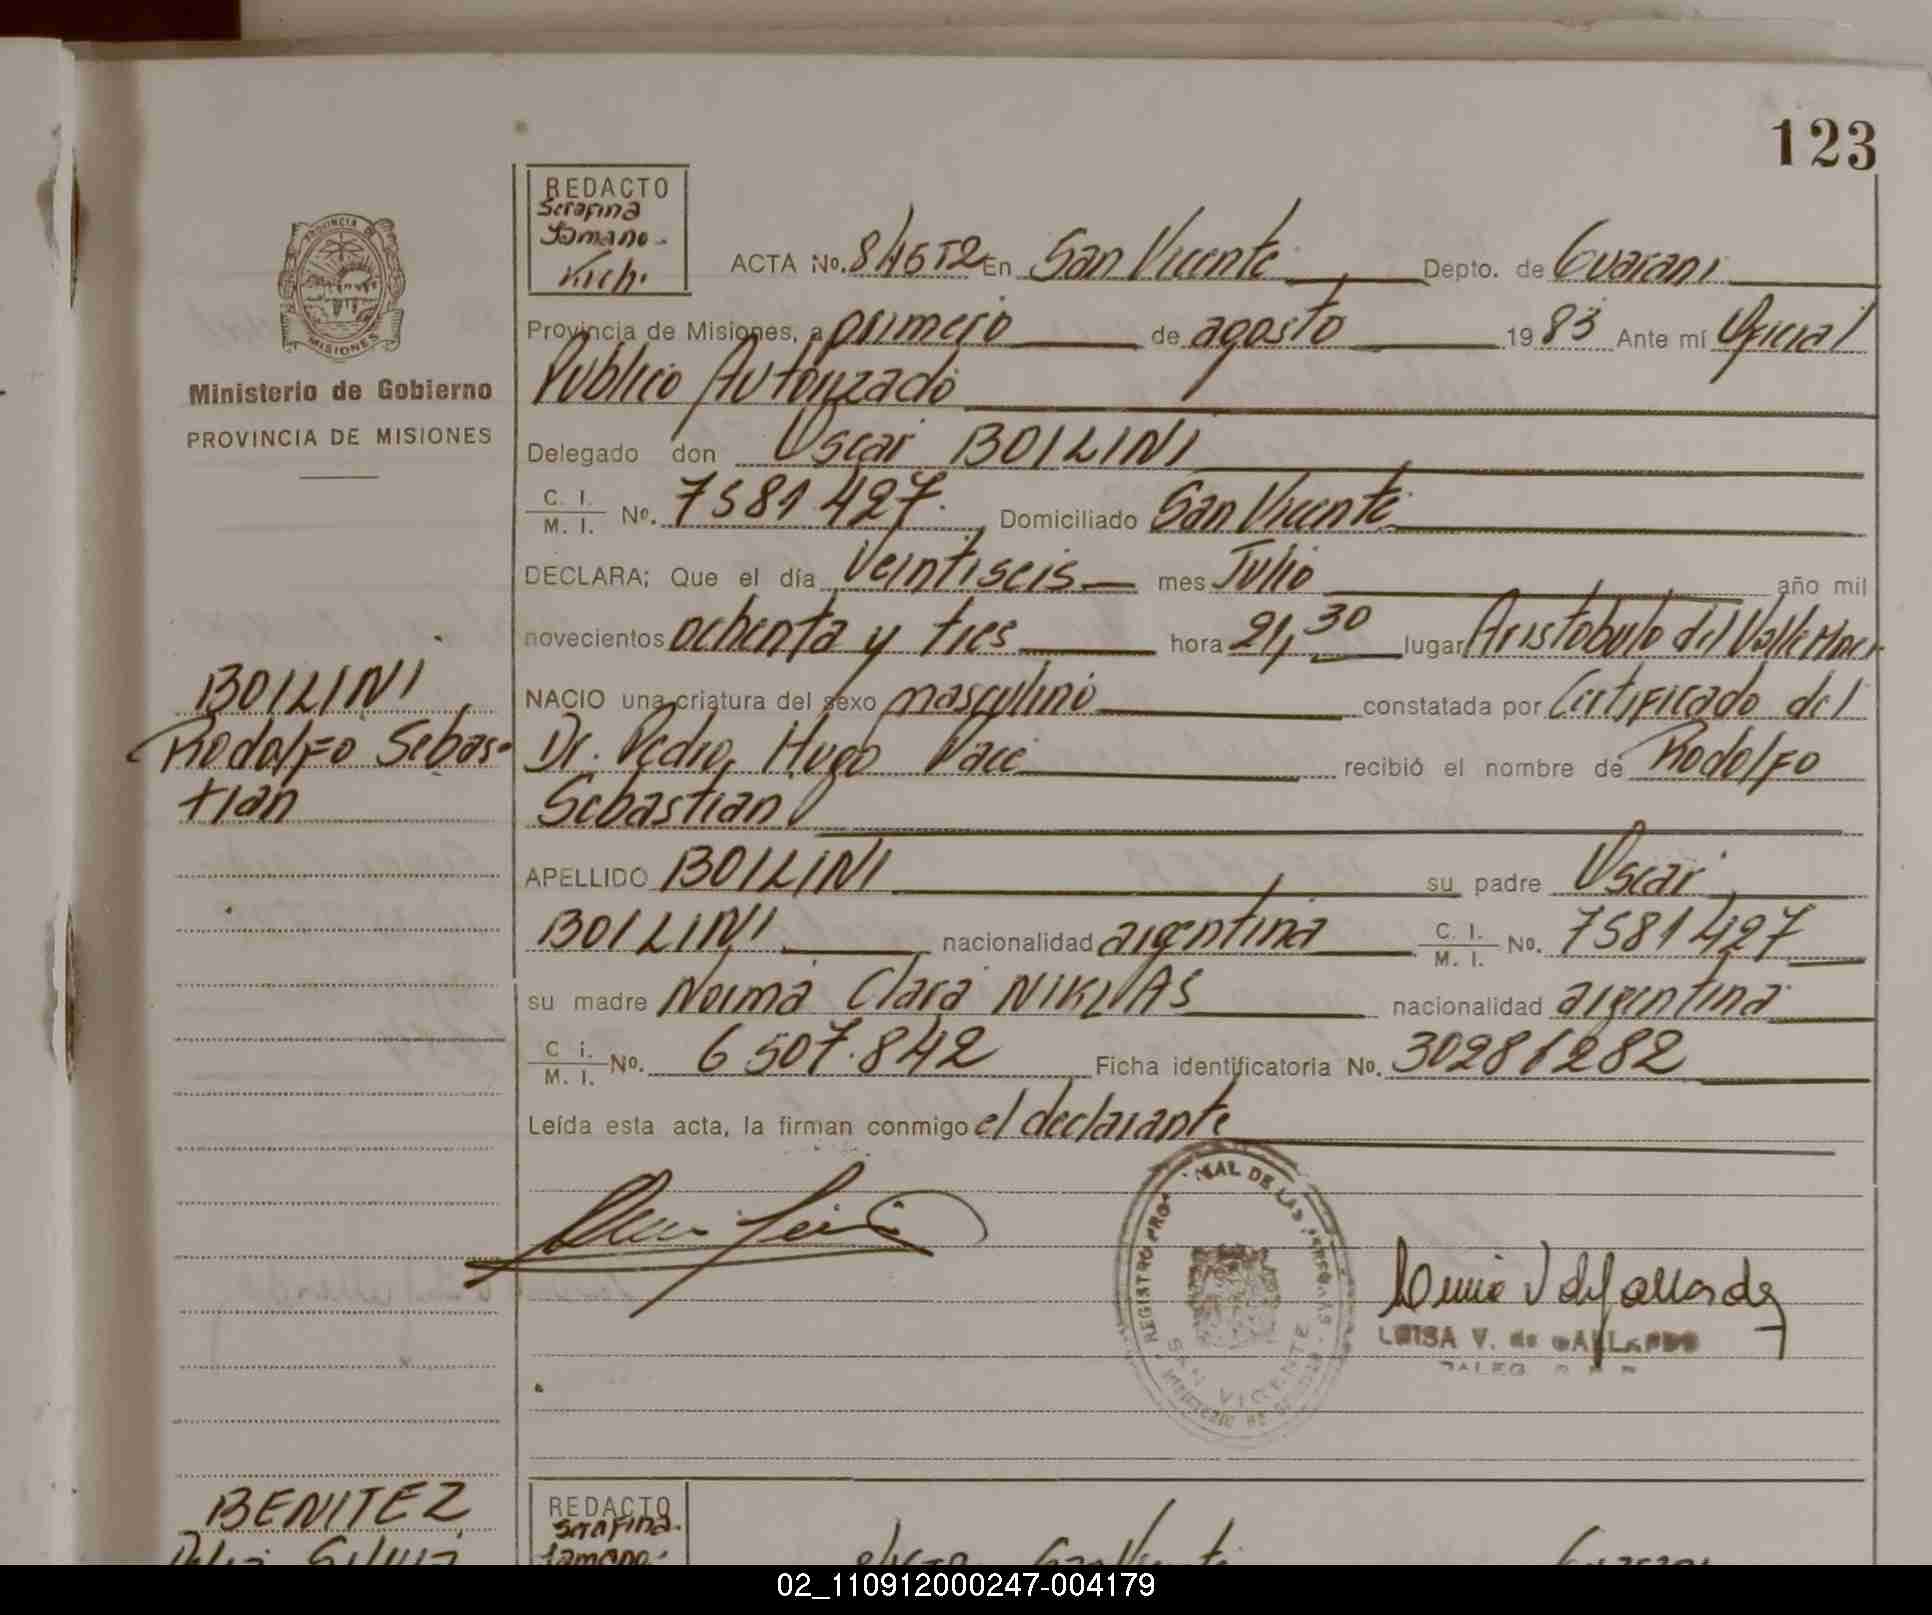 123
REDACTO
Serafina
Tamano-
Kich.
PROVINCIA DE
MISIONES
Ministerio de Gobierno
PROVINCIA DE MISIONES
ACTA No. En San Vicente Depto. de Guarani
Provincia de Misiones, a primero de agosto 1983 Ante mí Oficial
Publico Autorizado
Delegado don Oscar BOILINI
C. I. / M. I. No. 7581427. Domiciliado San Vicente
DECLARA; Que el día Veintiseis mes Julio año mil
novecientos ochenta y tres hora 21,30 lugar Aristobulo del Valle
NACIO una criatura del sexo masculino constatada por Certificado del
Dr. Pedro Hugo recibió el nombre de Rodolfo
Sebastian
APELLIDO BOILINI su padre Oscar
BOILINI nacionalidad argentina C. I. / M. I. No. 7581427
su madre Norma Clara NIKLAS nacionalidad argentina
C i. / M. I. No. 6507.842 Ficha identificatoria No. 30281282
Leída esta acta, la firman conmigo el declarante
BOILINI
Rodolfo Sebas-
tian
REGISTRO DE LAS
SAN VICENTE
LUISA V. de GALLARDO
BENITEZ
REDACTO
Serafina
Tamano-
San Vicente Guarani
02_110912000247-004179